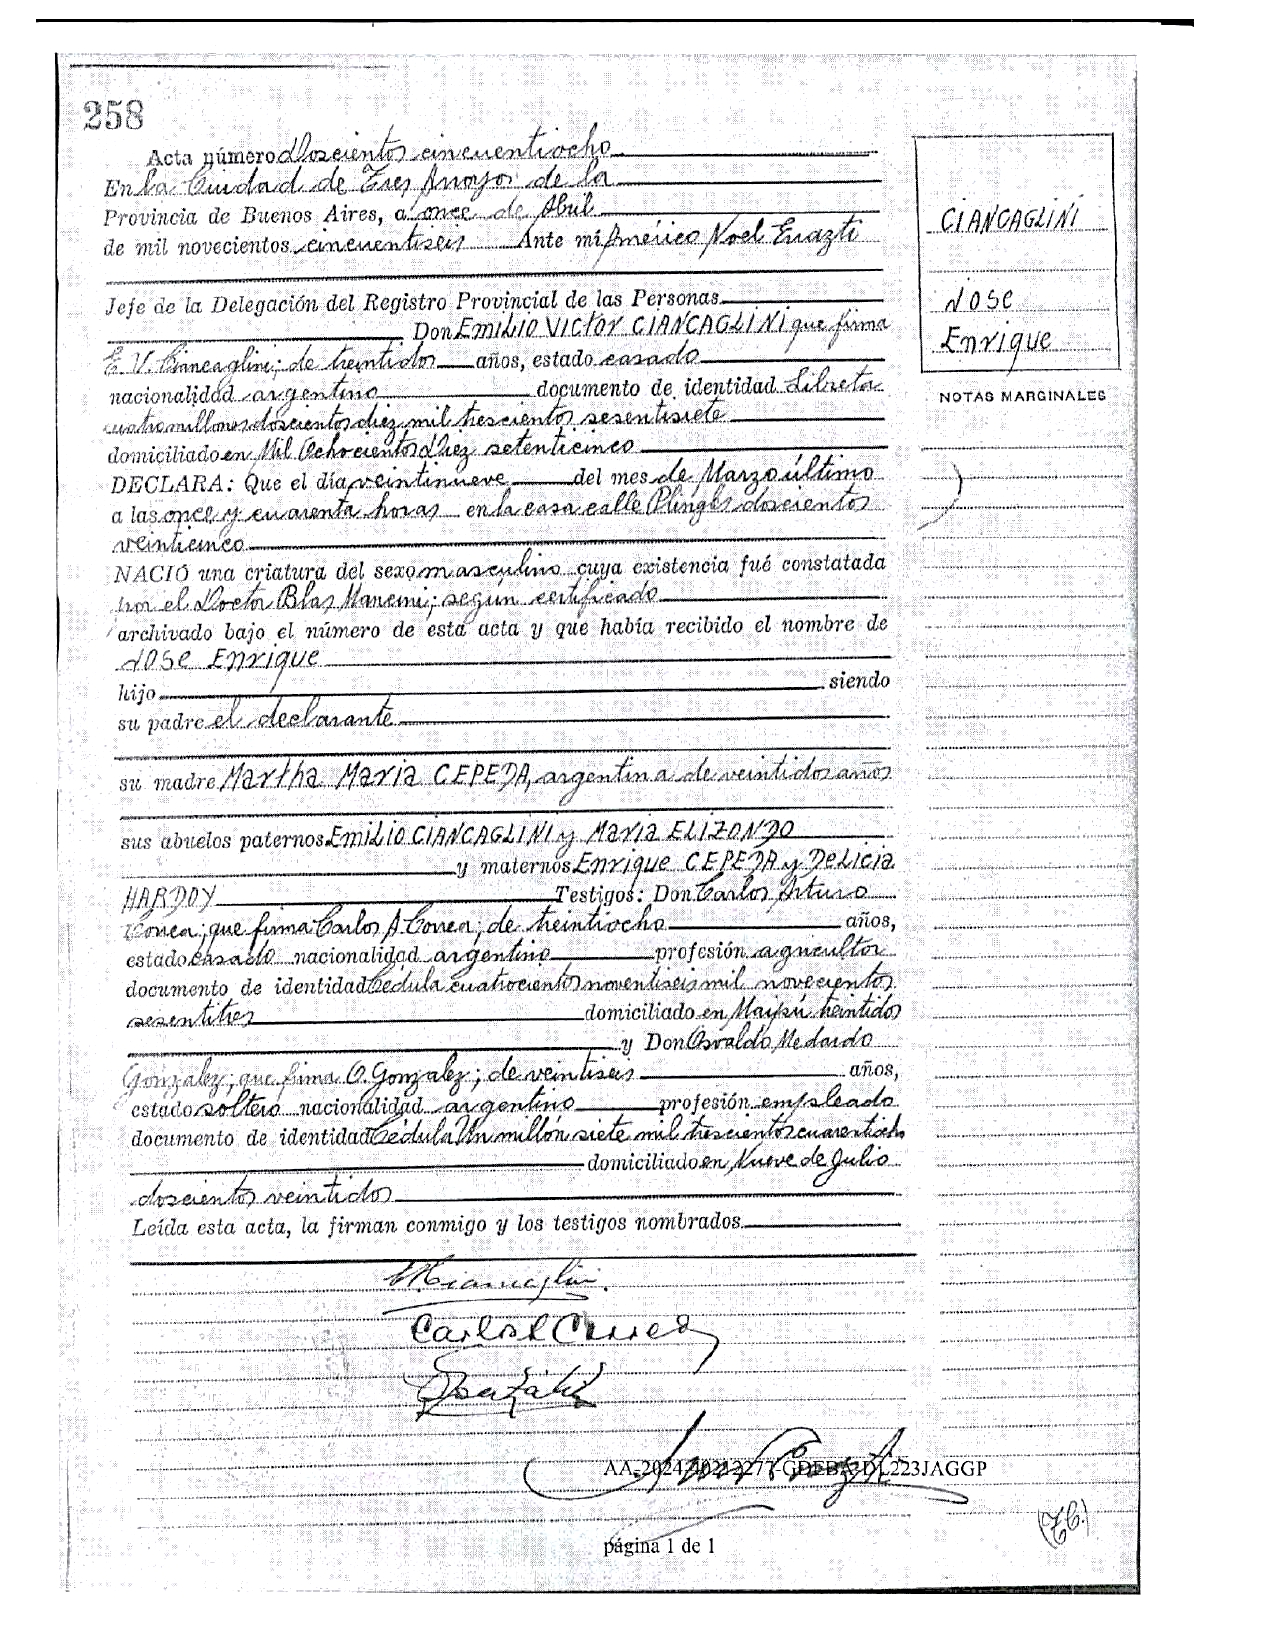 258
Acta número doscientos cincuentiocho
En la Ciudad de Tres Arroyos de la
Provincia de Buenos Aires, a once de Abril
de mil novecientos cincuentiseis Ante mi Américo Noel
Jefe de la Delegación del Registro Provincial de las Personas
Don EMILIO VICTOR CIANCAGLINI que firma
E. V. Ciancaglini; de treintidos años, estado casado
nacionalidad argentino documento de identidad Libreta
cuatro millones doscientos diez mil trescientos sesentisiete
domiciliado en Mil Ochocientos Diez setenticinco
DECLARA: Que el día veintinueve del mes de Marzo último
a las once y cuarenta horas en la casa calle Pringles doscientos
veinticinco
NACIÓ una criatura del sexo masculino cuya existencia fué constatada
por el Doctor Blas Mancini; según certificado
archivado bajo el número de esta acta y que había recibido el nombre de
JOSE Enrique
hijo siendo
su padre el declarante
su madre Martha Maria CEPEDA, argentina de veintidos años
sus abuelos paternos Emilio CIANCAGLINI y Maria ELIZONDO
y maternos Enrique CEPEDA y Delicia
HARDOY Testigos: Don Carlos Arturo
Correa; que firma Carlos A Correa; de treintiocho años,
estado casado nacionalidad argentino profesión agricultor
documento de identidad Cédula cuatrocientos noventiseis mil novecientos
sesentitres domiciliado en Maipú treintidos
y Don Osvaldo Medardo
Gonzalez; que firma O. Gonzalez; de veintiseis años,
estado soltero nacionalidad argentino profesión empleado
documento de identidad Cédula Un millón siete mil trescientos cuarentiocho
domiciliado en Nueve de Julio
doscientos veintidos
Leída esta acta, la firman conmigo y los testigos nombrados
Carlos A Correa
página 1 de 1
CIANCAGLINI
JOSE
Enrique
NOTAS MARGINALES